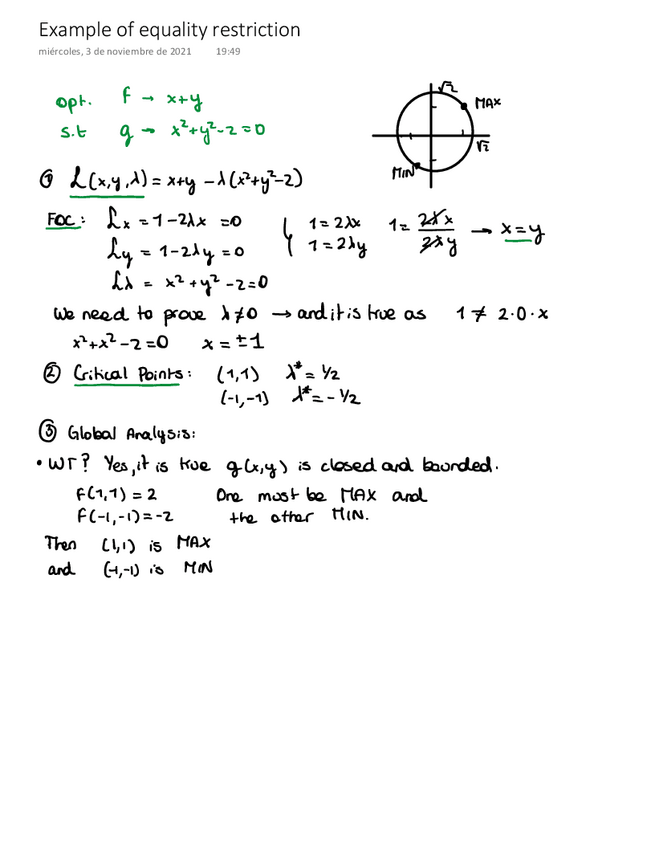 Example of equality restriction
miércoles, 3 de noviembre de 2021 19:49
opt. f → x+y
s.t g → x²+y²-2=0
√2
MAX
√2
MIN
① L(x,y,λ) = x+y -λ(x²+y²-2)
FOC: Lx = 1-2λx =0 { 1=2λx 1= 2λx / 2λy → x=y
Ly = 1-2λy =0 1=2λy
Lλ = x²+y²-2=0
We need to prove λ≠0 → and it is true as 1 ≠ 2·0·x
x²+x²-2=0 x=±1
② Critical Points: (1,1) λ*= 1/2
(-1,-1) λ*=-1/2
③ Global Analysis:
• WT? Yes, it is true g(x,y) is closed and bounded.
f(1,1) = 2 One must be MAX and
f(-1,-1)=-2 the other MIN.
Then (1,1) is MAX
and (-1,-1) is MIN